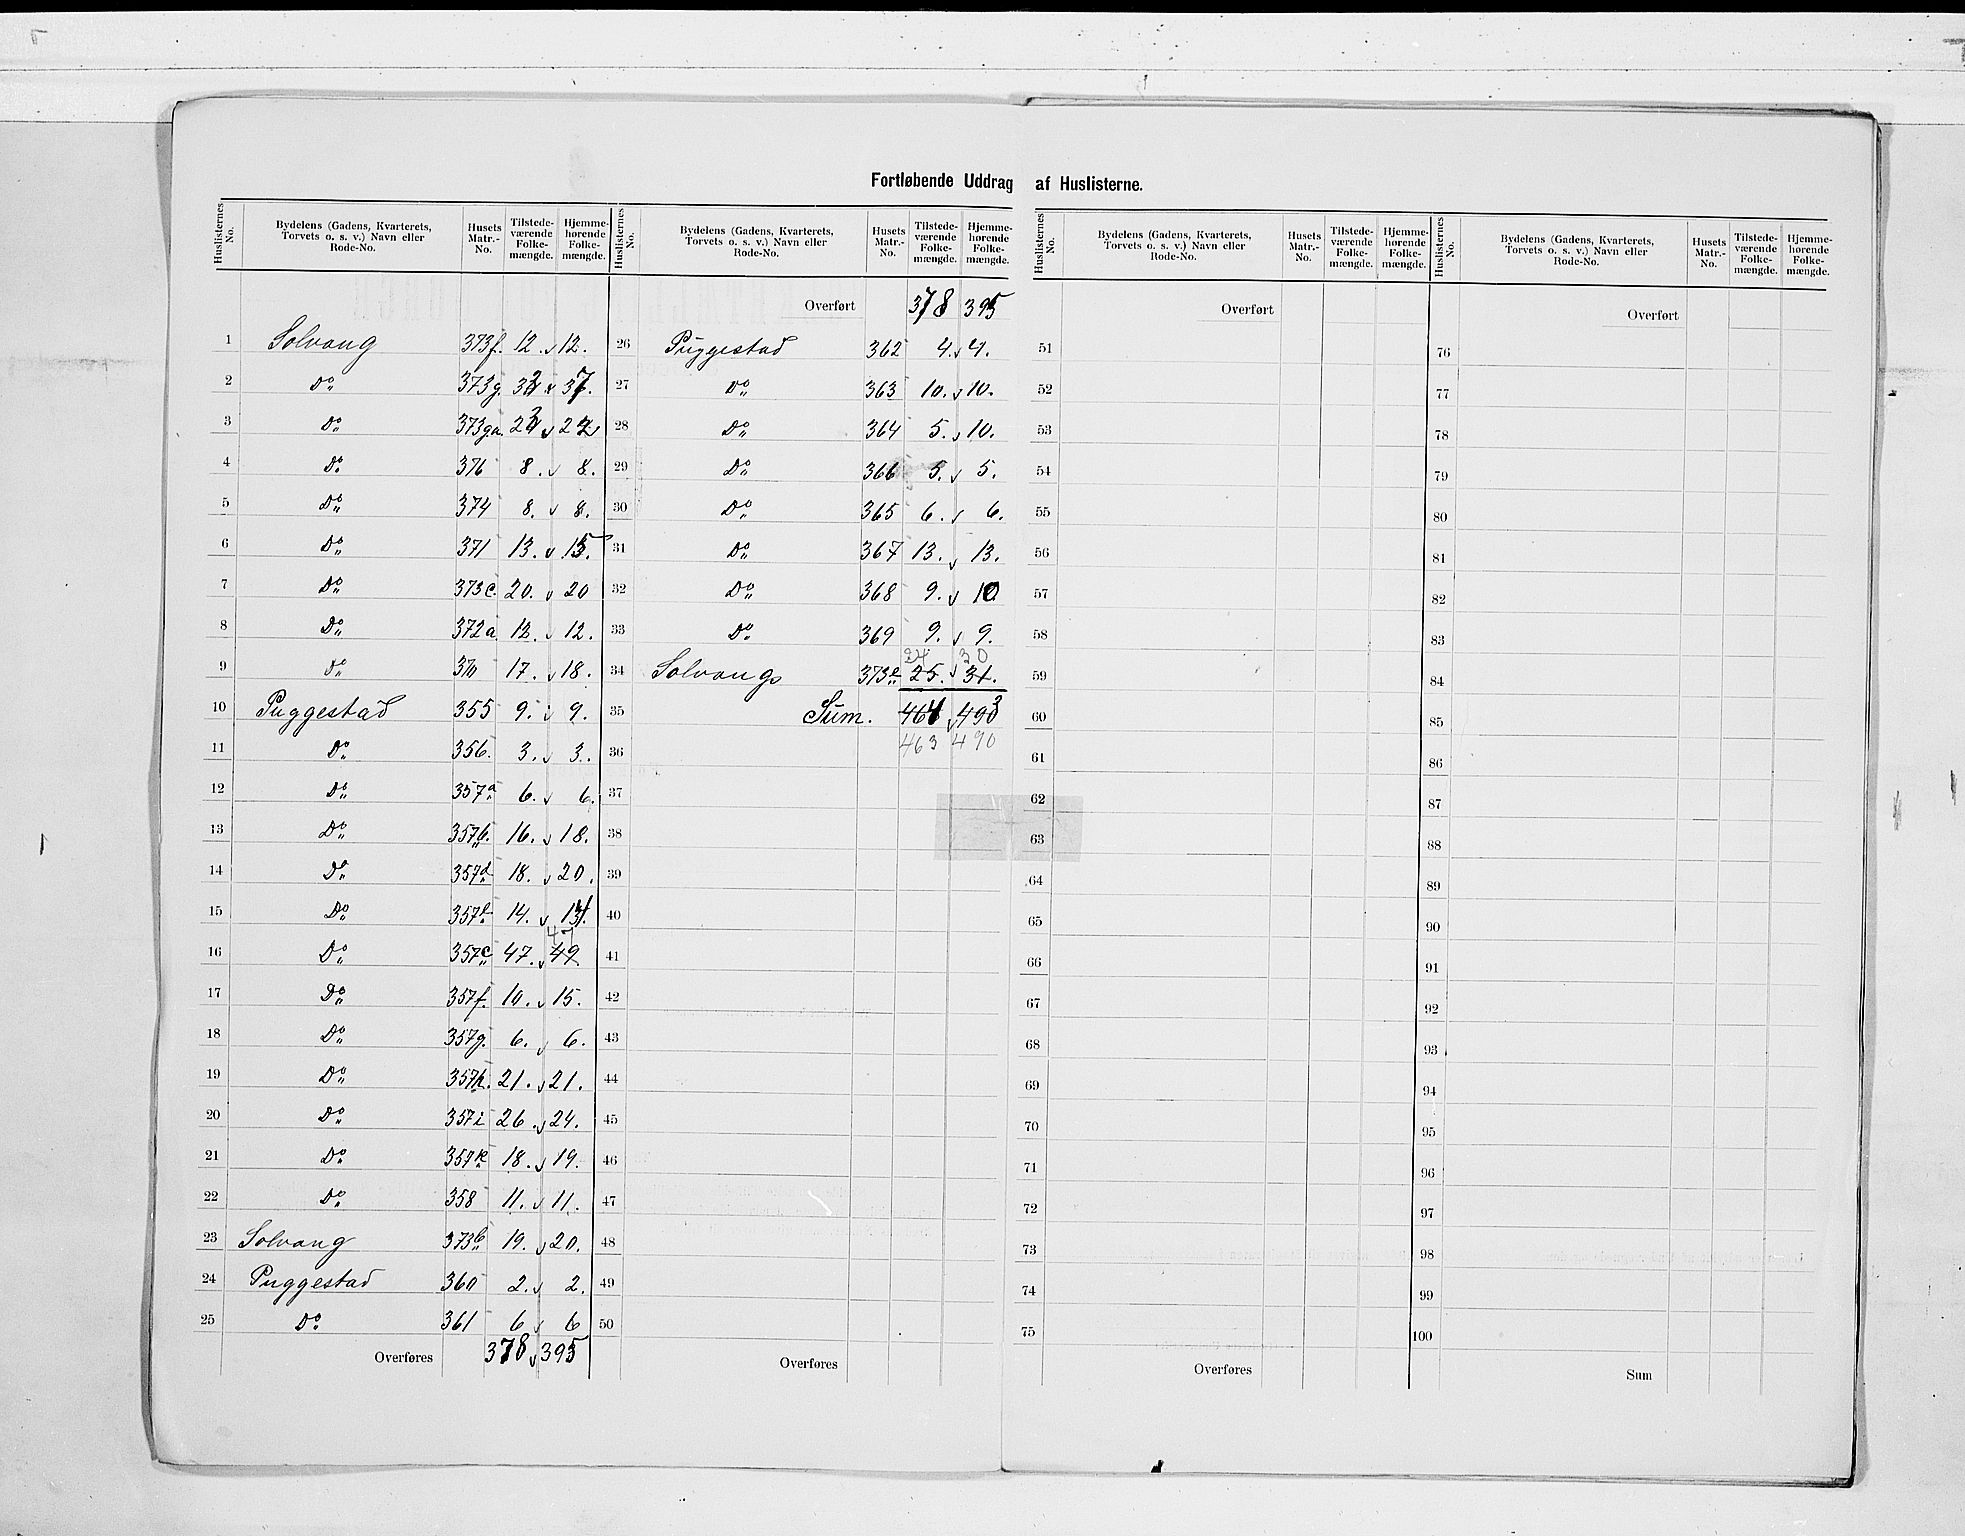 Fortløbende Uddrag af Huslisterne.
Huslisternes No. | Bydelens (Gadens, Kvarterets, Torvets o. s. v.) Navn eller Rode-No. | Husets Matr.-No. | Tilstedeværende Folkemængde. | Hjemmehørende Folkemængde.
1 Solvang 373f. 12. 12.
2 Do 373g. 37.
3 Do 373ga.
4 Do 376 8. 8.
5 Do 374 8. 8.
6 Do 371 13. 15.
7 Do 373c. 20. 20
8 Do 372a. 12. 12.
9 Do 370 17. 18.
10 Puggestad 355 9. 9.
11 Do 356. 3. 3.
12 Do 357a 6. 6.
13 Do 357b. 16. 18.
14 Do 357d 18. 20.
15 Do 357e 14.
16 Do 357c 47. 49 47
17 Do 357f. 10. 15.
18 Do 357g. 6. 6.
19 Do 357h. 21. 21.
20 Do 357i 26. 24.
21 Do 357k 18. 19.
22 Do 358 11. 11.
23 Solvang 373b 19. 20.
24 Puggestad 360 2. 2.
25 Do 361 6 6
Overføres 378 395
Huslisternes No. | Bydelens (Gadens, Kvarterets, Torvets o. s. v.) Navn eller Rode-No. | Husets Matr.-No. | Tilstedeværende Folkemængde. | Hjemmehørende Folkemængde.
Overført 378 395
26 Puggestad 362 4. 4.
27 Do 363 10. 10.
28 Do 364 5. 10.
29 Do 366 5. 5.
30 Do 365 6. 6.
31 Do 367 13. 13.
32 Do 368 9. 10
33 Do 369 9. 9.
24 30
34 Solvangs 373e 25. 31.
35 Sum. 464 493
36 463 490
37
38
39
40
41
42
43
44
45
46
47
48
49
50
Overføres
Huslisternes No. | Bydelens (Gadens, Kvarterets, Torvets o. s. v.) Navn eller Rode-No. | Husets Matr.-No. | Tilstedeværende Folkemængde. | Hjemmehørende Folkemængde.
Overført
51
52
53
54
55
56
57
58
59
60
61
62
63
64
65
66
67
68
69
70
71
72
73
74
75
Overføres
Huslisternes No. | Bydelens (Gadens, Kvarterets, Torvets o. s. v.) Navn eller Rode-No. | Husets Matr.-No. | Tilstedeværende Folkemængde. | Hjemmehørende Folkemængde.
Overført
76
77
78
79
80
81
82
83
84
85
86
87
88
89
90
91
92
93
94
95
96
97
98
99
100
Sum